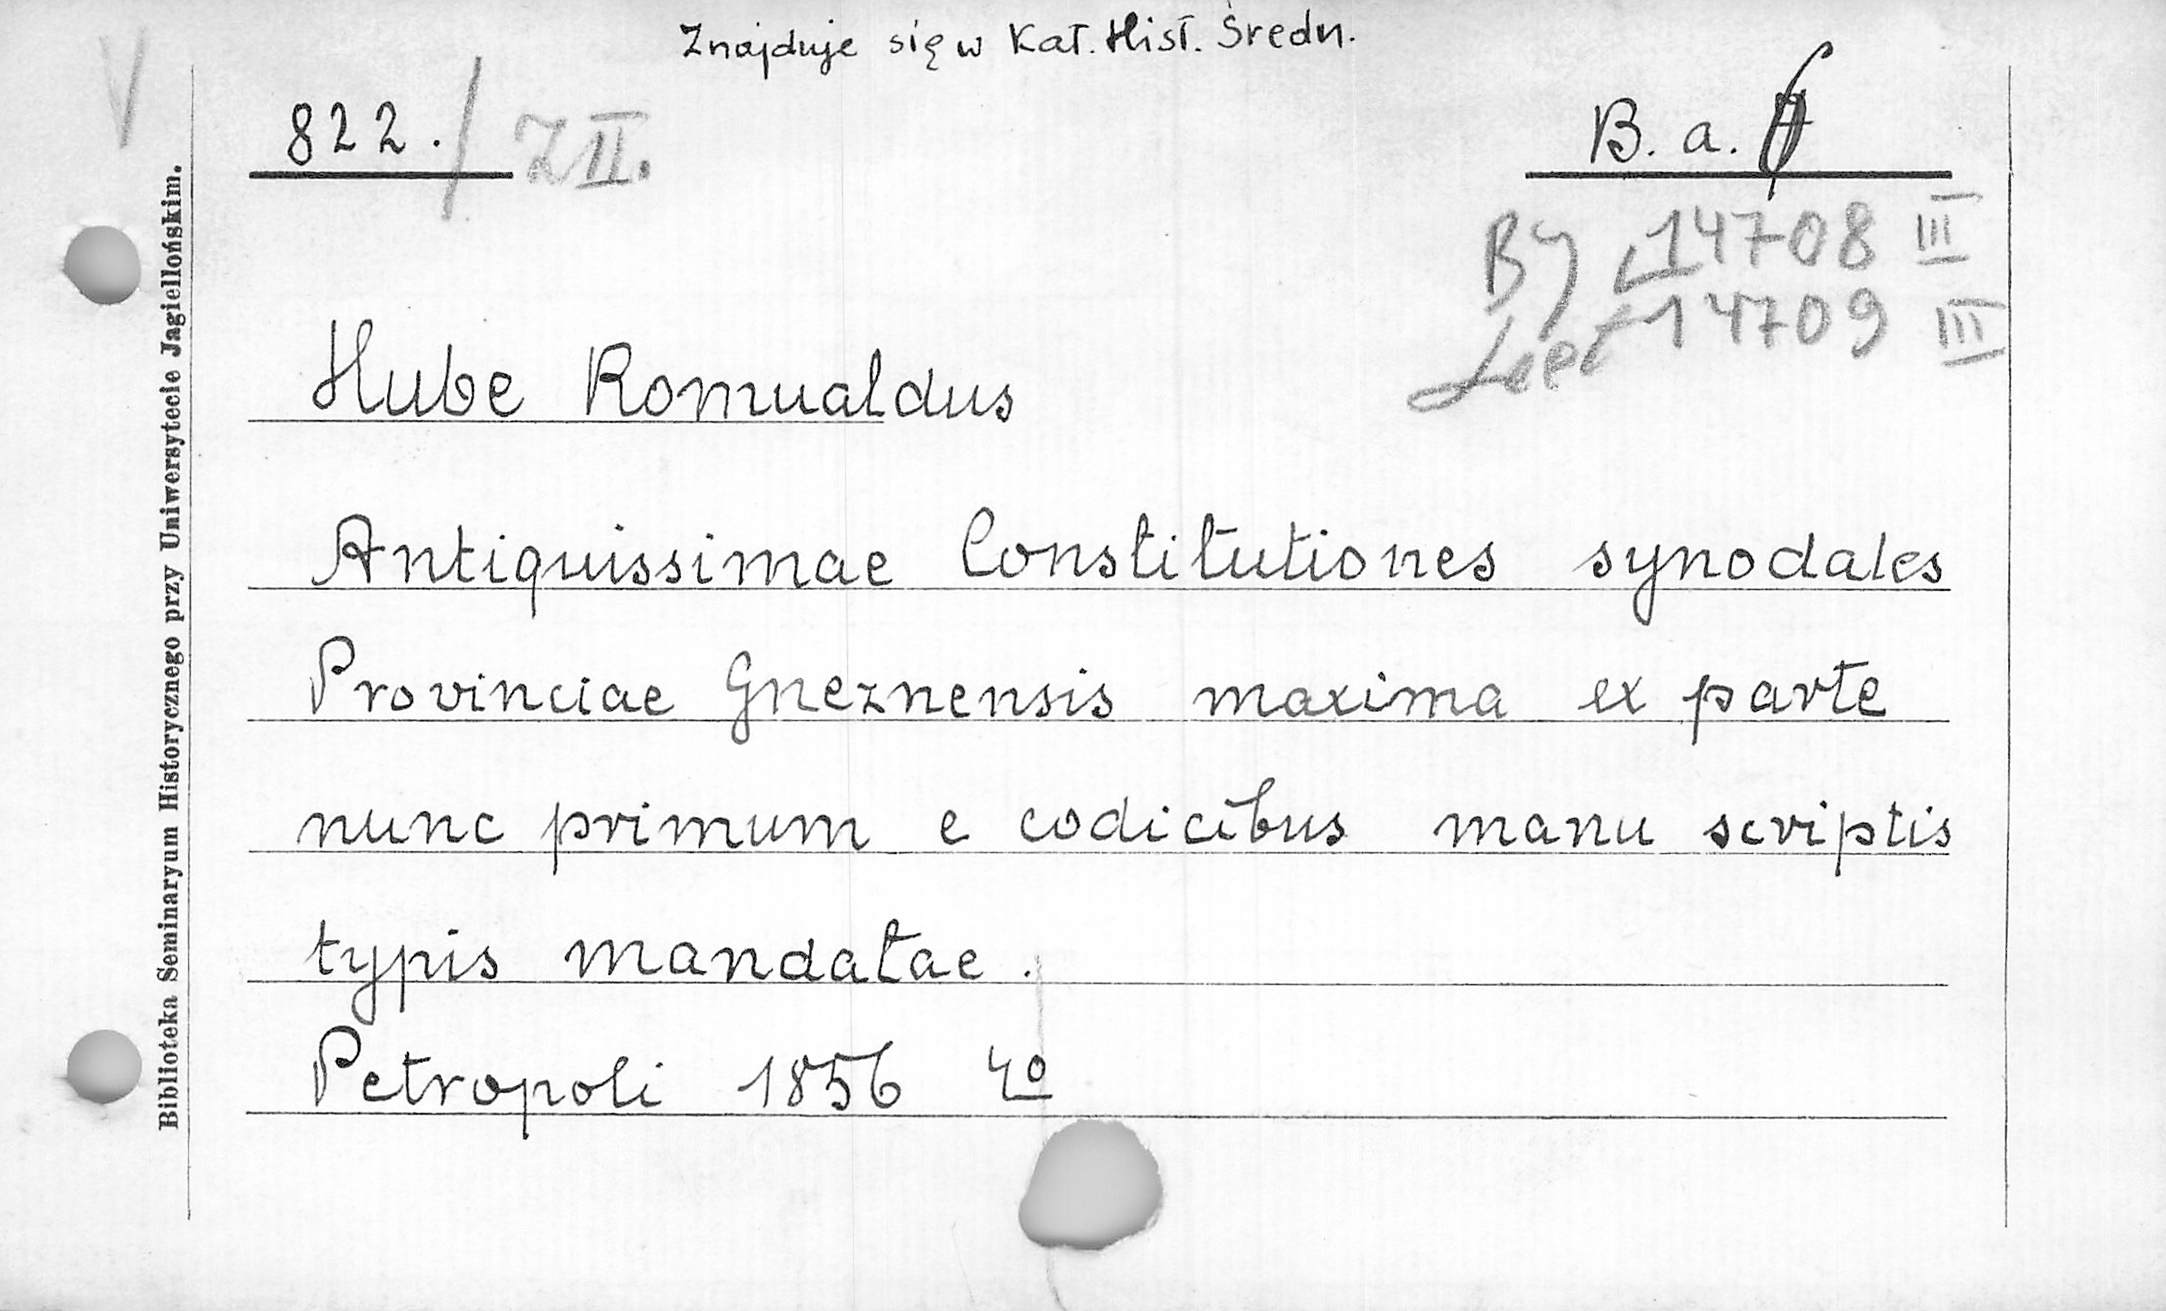 Znajduje się w Kat. Hist. Średn.
822. / Z II.
B. a. 6
BJ 14708 III
14709 III
Hube Romualdus
Antiquissimae Constitutiones synodales
Provinciae Gneznensis maxima ex parte
nunc primum e codicibus manu scriptis
typis mandatae.
Petropoli 1856 4º
Biblioteka Seminaryum Historycznego przy Uniwersytecie Jagiellońskim.